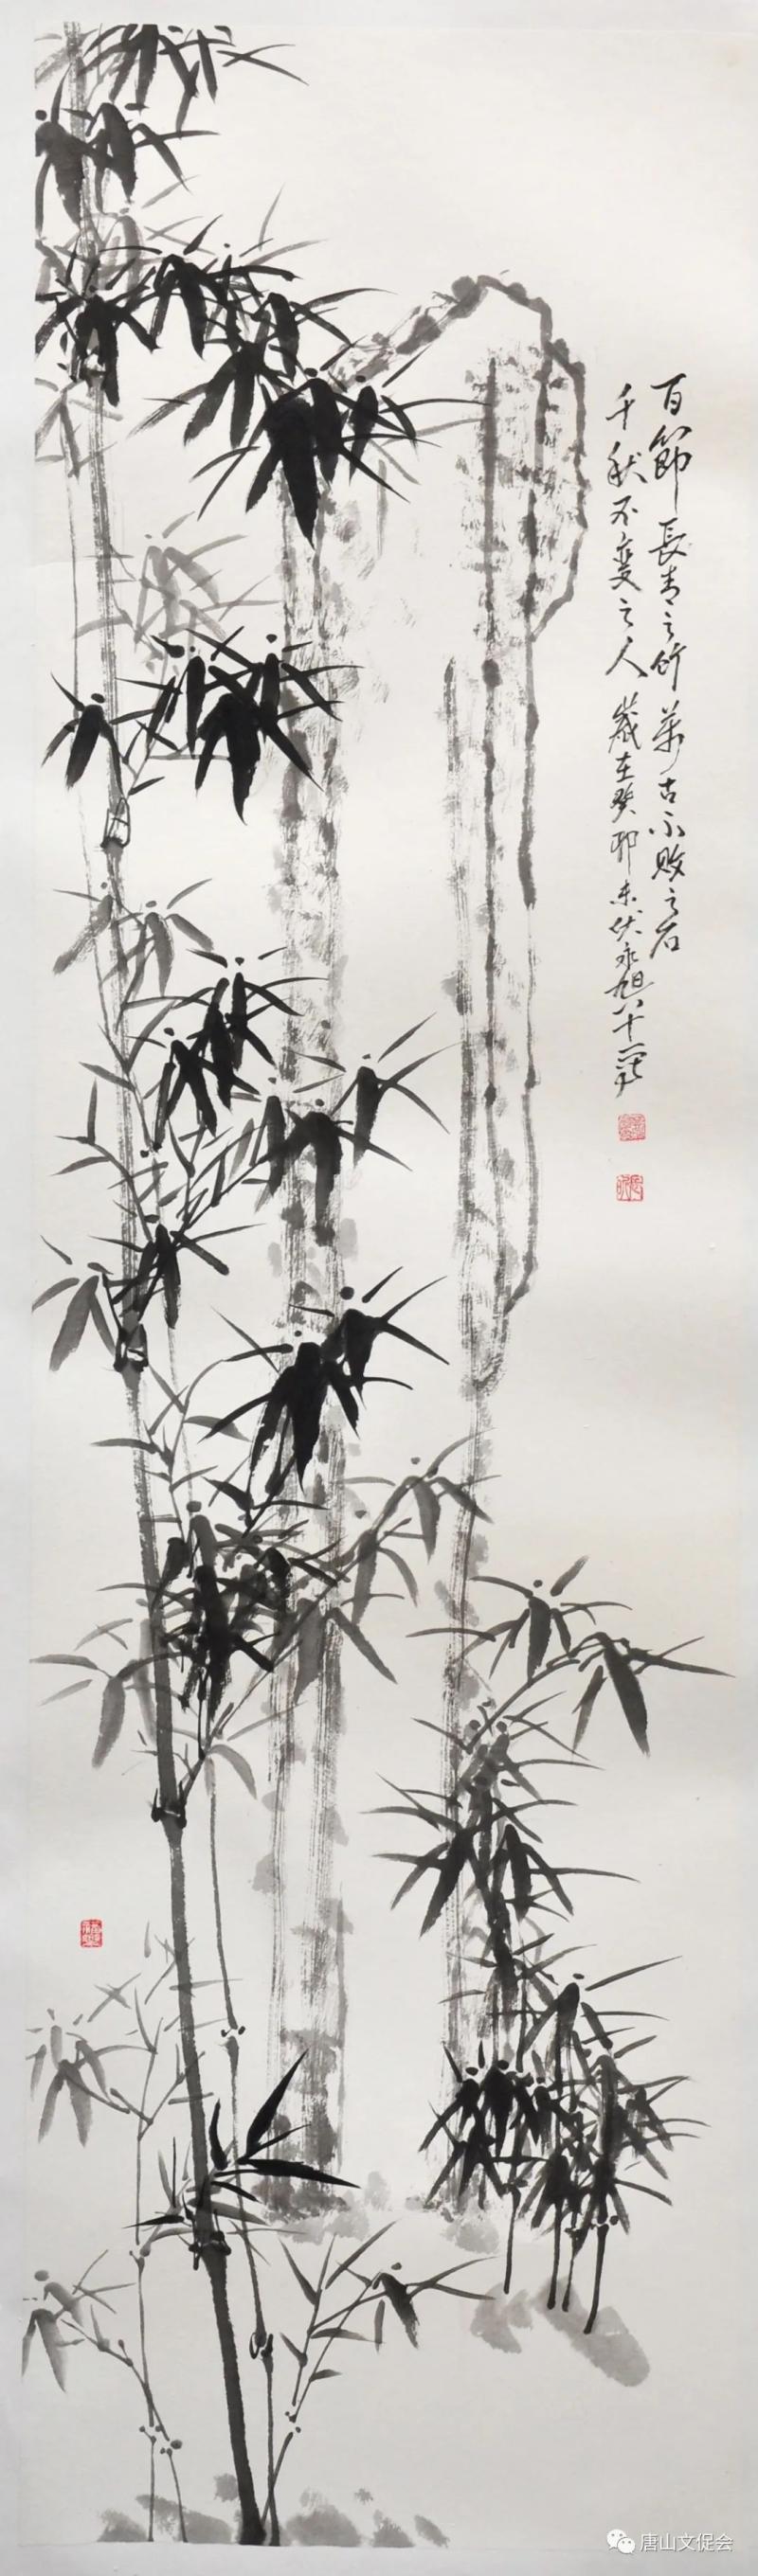 百節長青之竹萬古不敗之石
千秋不變之人歲在癸卯末伏永旭八十一歲
唐山文促会